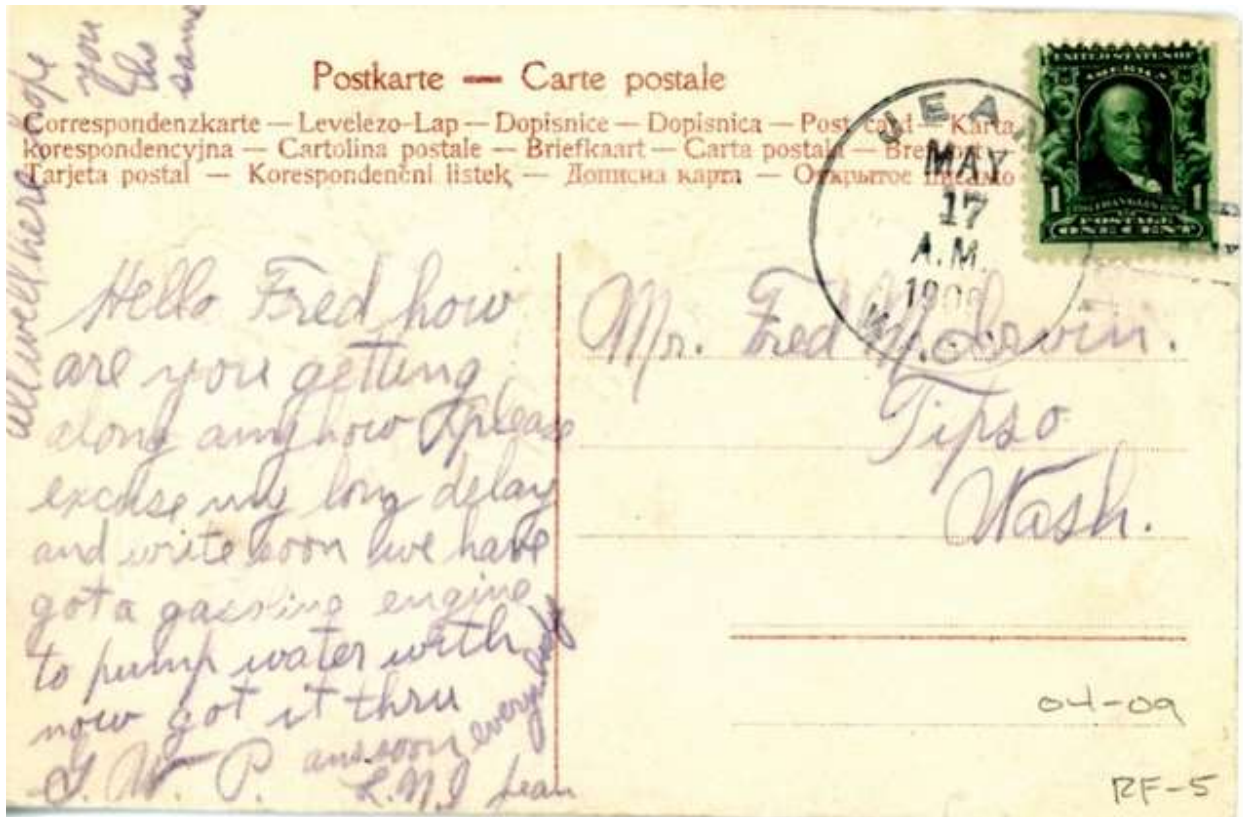 Postkarte — Carte postale
Correspondenzkarte — Levelezo-Lap — Dopisnice — Dopisnica — Post card — Karta
korespondencyjna — Cartolina postale — Briefkaart — Carta postala —
Tarjeta postal — Korespondenčni listek — Дописна карта — Открытое письмо
UNITED STATES OF
AMERICA
1 1
POSTAGE
ONE CENT
MAY
17
A.M.
Hello Fred how
are you getting
along anyhow please
excuse my long delay
and write soon we have
got a gassing engine
to pump water with
now got it thru
ans soon everybody
all well here hope
you
the
same
Mr. Fred
Tipso
Wash.
04-09
RF-5